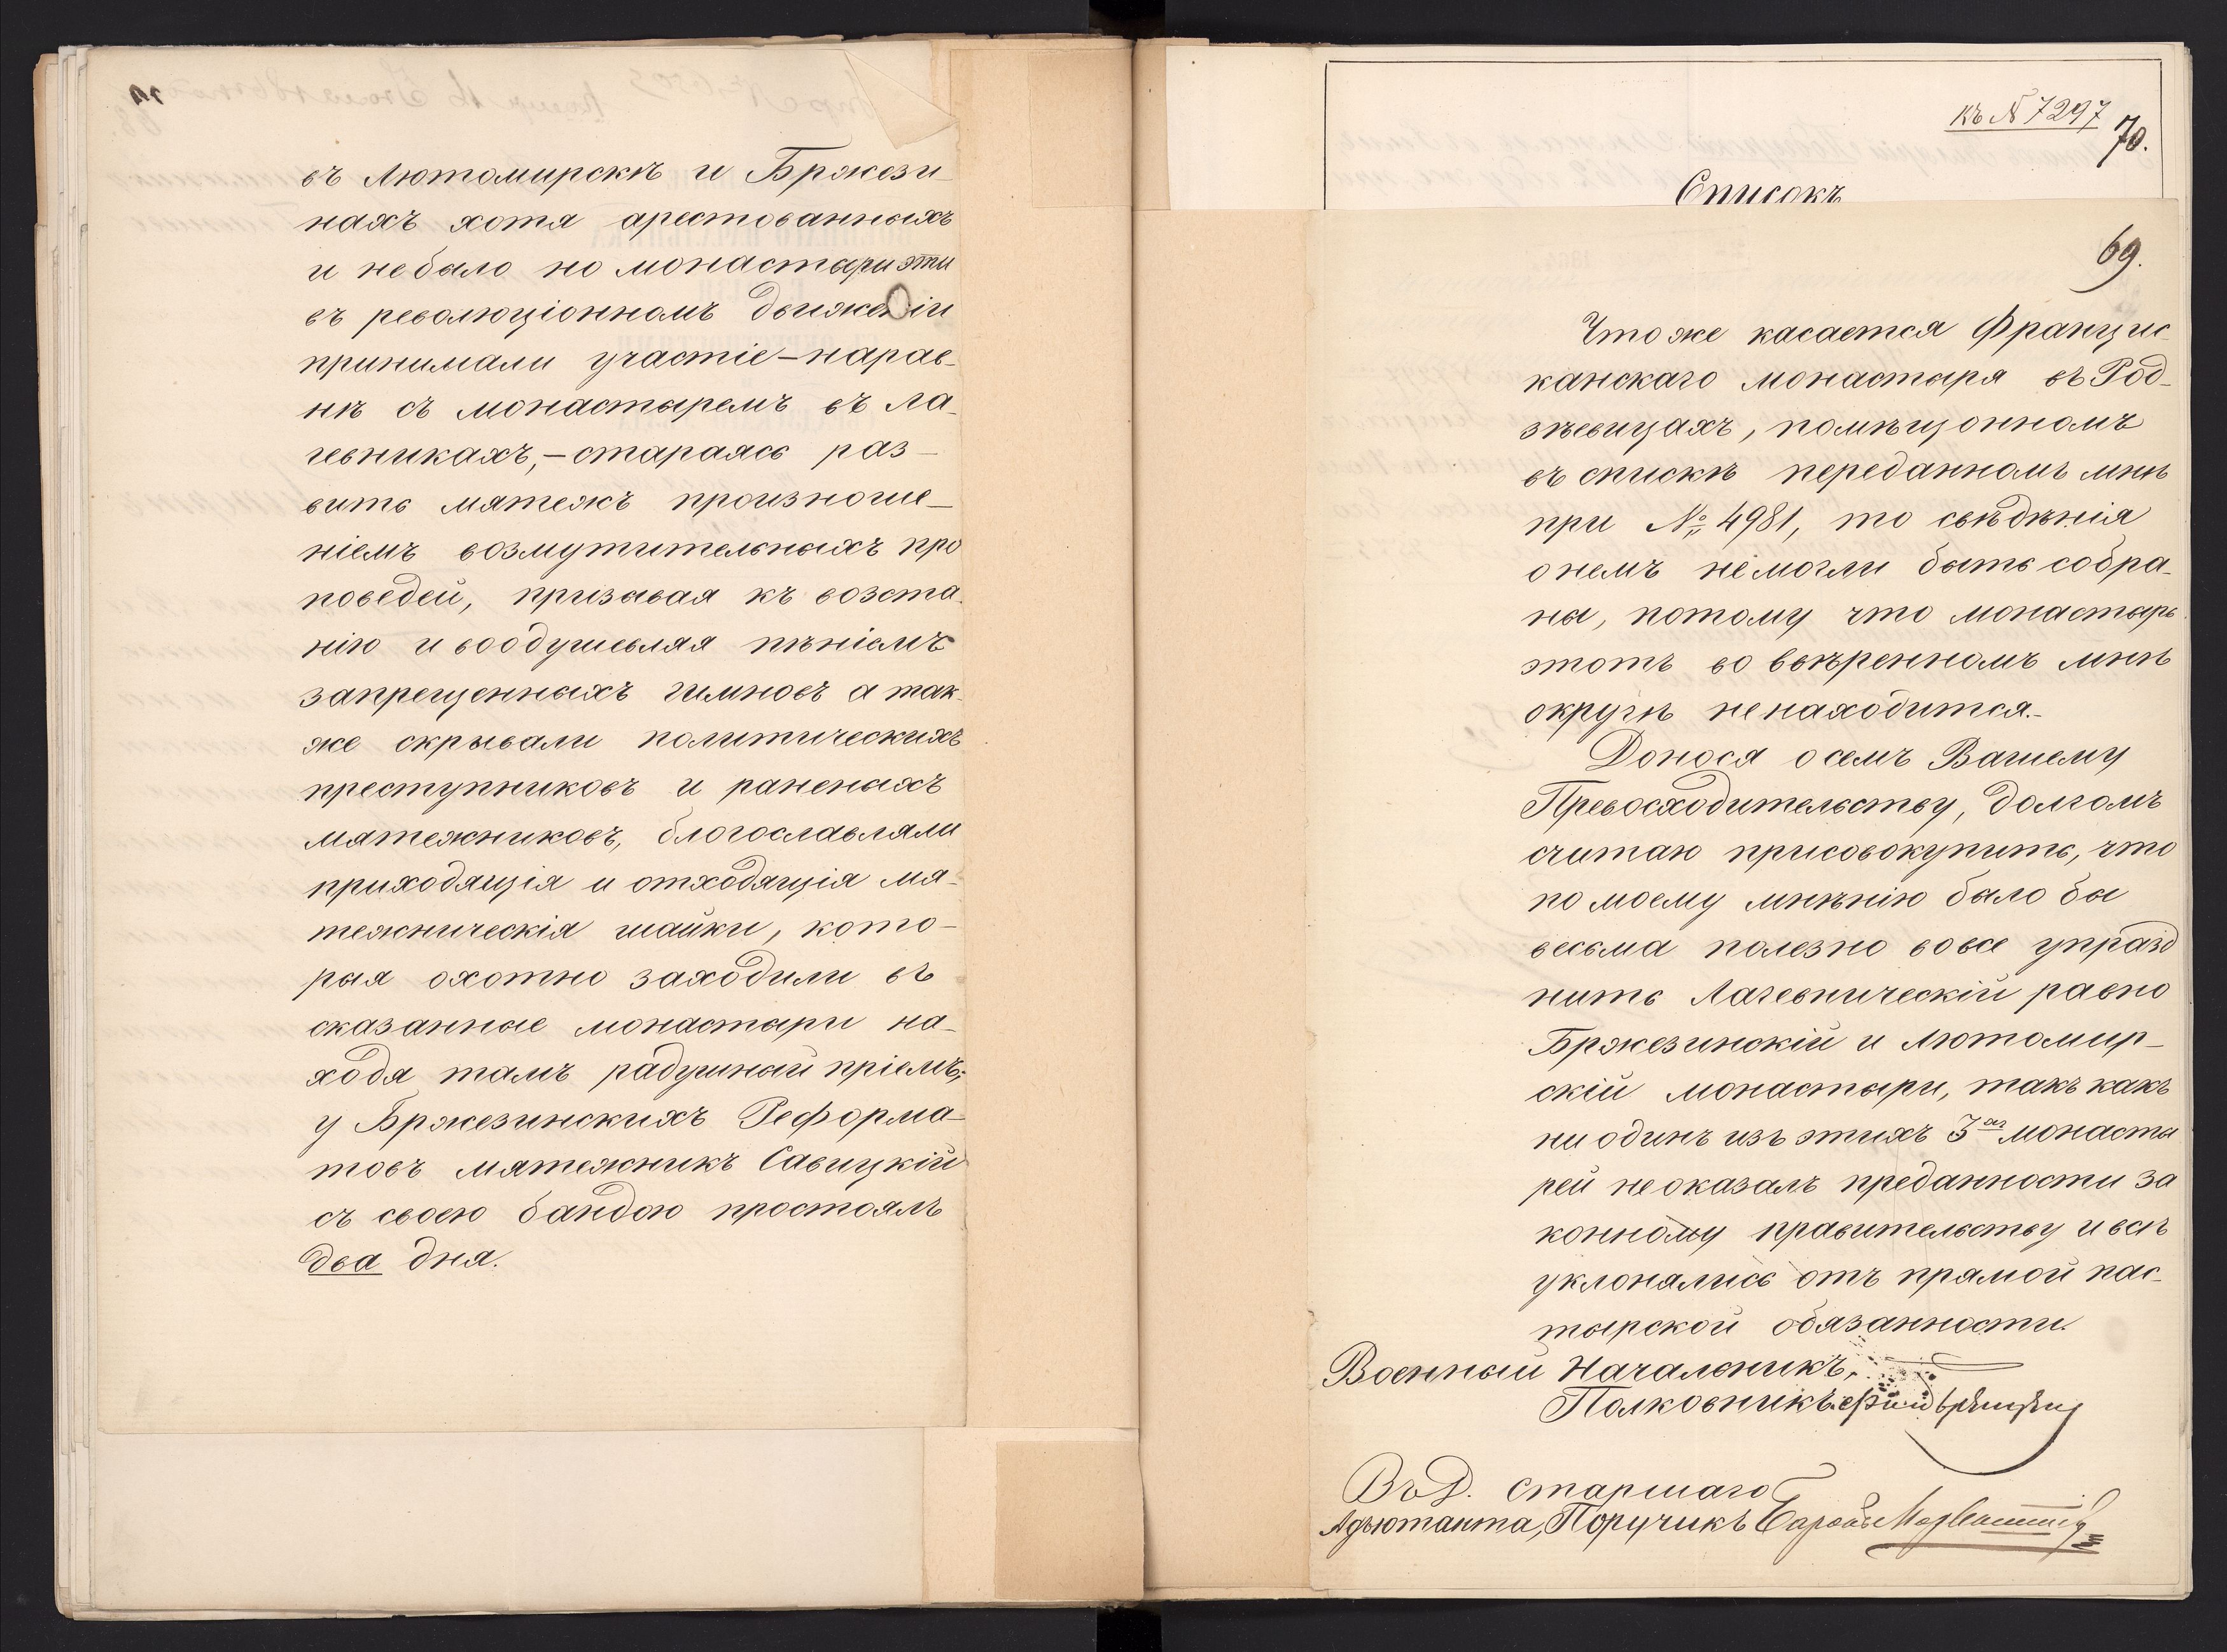 въ Лютомирскѣ и Бржези-
нахъ хотя арестованныхъ
и небыло но монастыри эти
въ революціонномъ движеніи
принимали участіе – нарав-
нѣ съ монастыремъ въ Ла-
гевникахъ, – стараясь раз-
вить мятежъ произноше-
ніемъ возмутительныхъ про
поведей, призывая къ возста-
нію и воодушевляя пѣніемъ
запрещенныхъ гимновъ а так-
же скрывали политическихъ
преступниковъ и раненыхъ
мятежниковъ, блогославляли
приходящія и отходящія мя-
тежническія шайки, кото-
рыя охотно заходили въ
сказанные монастыри на-
ходя тамъ радушный пріемъ;
у Бржезинскихъ Реформа-
товъ мятежникъ Савицкій
съ своею бандою простоялъ
два дня.
къ № 7297
70.
Списокъ
69.
Что же касается Францис-
канскаго монастыря въ Род-
зѣевицахъ, помѣщонномъ
въ спискѣ переданномъ мнѣ
при № 4981, то свѣдѣнія
о немъ немогли быть собра-
ны, потому что монастырь
этотъ во ввѣренномъ мнѣ
округѣ ненаходится.-
Донося о семъ Вашему
Превосходительству, долгомъ
считаю присовокупить, что
по моему мнѣнію было бы
весьма полезно вовсе упразд
нить Лагевническій равно
Бржезинскій и Лютомир-
скій монастыри, такъ какъ
ни одинъ изъ этихъ 3хъ монасты
рей неоказалъ преданности за
конному правительству и всѣ
уклонялись отъ прямой пас-
тырской обязанности.
Военный Начальникъ,
Полковникъ
ВъД. Старшаго
Адъютанта, Поручикъ Баронъ